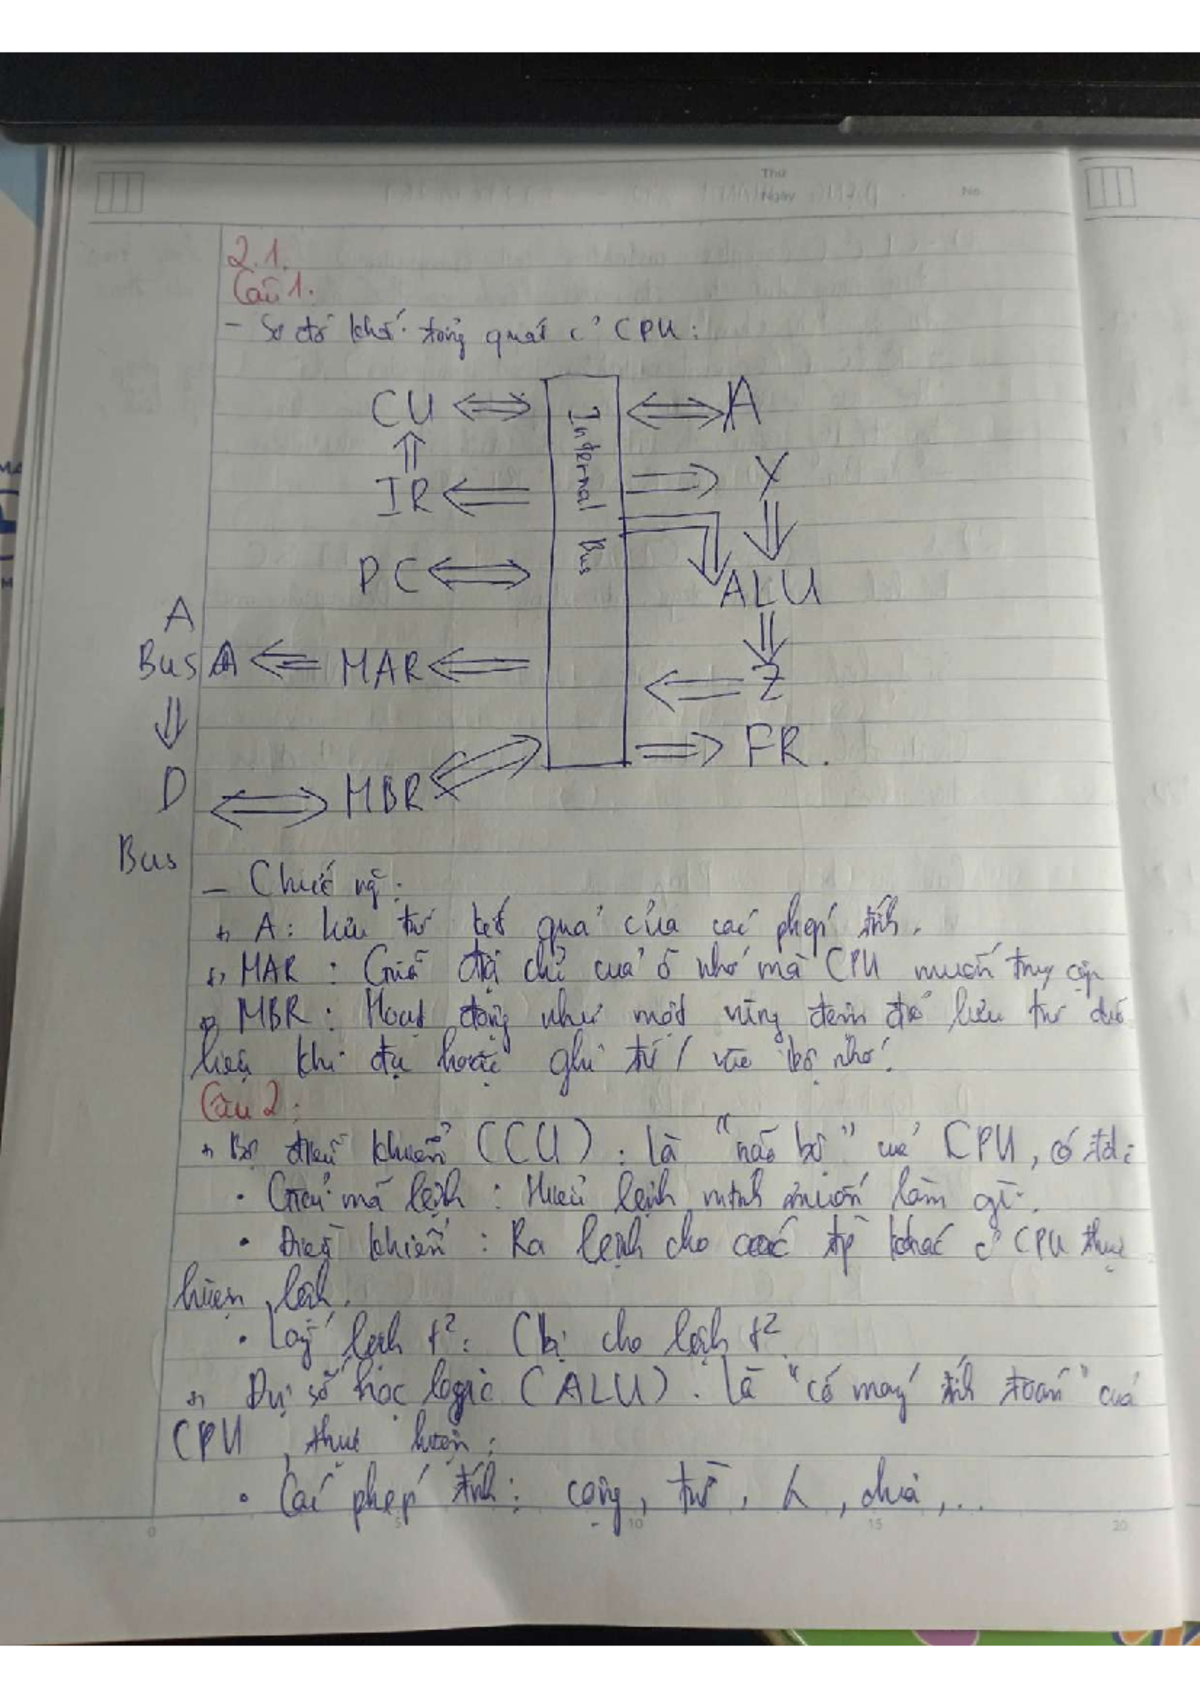 Thứ
Ngày
No.
2.1.
Câu 1.
- Sơ đồ khối tổng quát c' CPU:
CU
A
Internal Bus
IR
Y
PC
ALU
A
Bus
MAR
Z
D
MBR
FR.
Bus
- Chức ng:
+, A: Lưu trữ kết quả của các phép tính.
+, MAR: Giữ địa chỉ của ô nhớ mà CPU muốn truy cập
+, MBR: Hoạt động như một vùng đệm để lưu trữ dữ
liệu khi đọc hoặc ghi từ / vào bộ nhớ.
Câu 2:
+, Bộ điều khiển (CCU): là "não bộ" của CPU, có
• Giải mã lệnh: Hiểu lệnh mình muốn làm gì.
• Điều khiển: Ra lệnh cho các khác c' CPU thực
hiện lệnh.
• Lấy lệnh t²: Cbị cho lệnh t²
+, số học logic (ALU): Là "cỗ máy tính toán" của
CPU, thực hiện:
• Các phép tính: cộng, trừ, chia,...
0
5
10
15
20